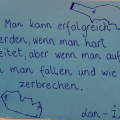 Man kann erfolgreich
werden, wenn man hart
arbeitet, aber wenn man auf
man fallen, und wie
zerbrechen.